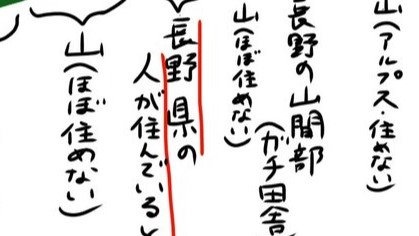 山(アルプス・住めない)
長野の山間部
(ガチ田舎
山(ほぼ住めない)
長野県の
人が住んでいると
山(ほぼ住めない)